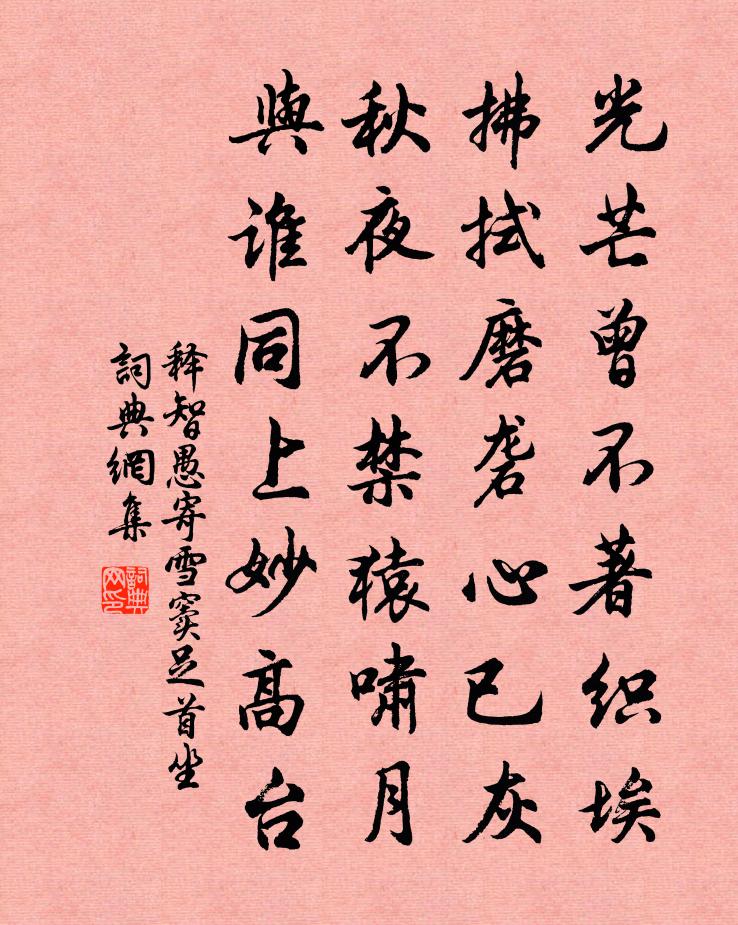 光芒曾不著织埃
拂拭磨砻心已灰
秋夜不禁猿啸月
與谁同上妙高台
释智愚寄雪窦足首坐
詞典網集
詞典网印